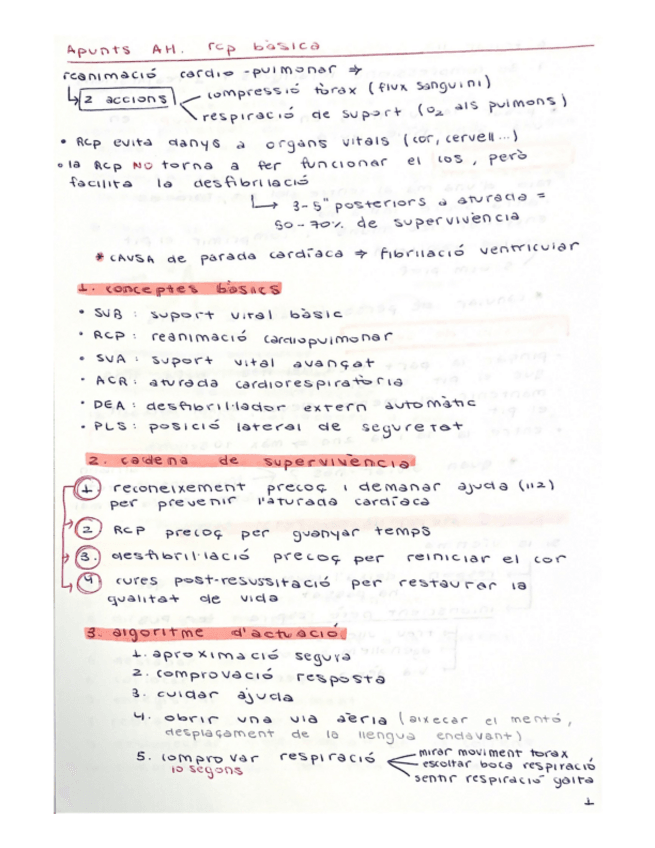 Apunts AH. rcp bàsica
reanimació cardio-pulmonar ⇒
↳ 2 accions
compressió tòrax (flux sanguini)
respiració de suport (O2 als pulmons)
• Rcp evita danys a organs vitals (cor, cervell...)
• la Rcp NO torna a fer funcionar el cos, però
facilita la desfibrilació
↳ 3-5" posteriors a aturada =
50-70% de supervivència
* CAUSA de parada cardíaca ⇒ fibrilació ventricular
1. conceptes bàsics
• SVB: suport vital bàsic
• RCP: reanimació cardiopulmonar
• SVA: suport vital avançat
• ACR: aturada cardiorespiratòria
• DEA: desfibril·lador extern automàtic
• PLS: posició lateral de seguretat
2. cadena de supervivència
1 reconeixement precoç i demanar ajuda (112)
per prevenir l'aturada cardíaca
2 RCP precoç per guanyar temps
3. desfibril·lació precoç per reiniciar el cor
4 cures post-resussitació per restaurar la
qualitat de vida
3. algoritme d'actuació
1. aproximació segura
2. comprovació resposta
3. cuidar ajuda
4. obrir una via aèria (aixecar el mentó,
desplaçament de la llengua endavant)
5. comprovar respiració
10 segons
mirar moviment torax
escoltar boca respiració
sentir respiració galta
1